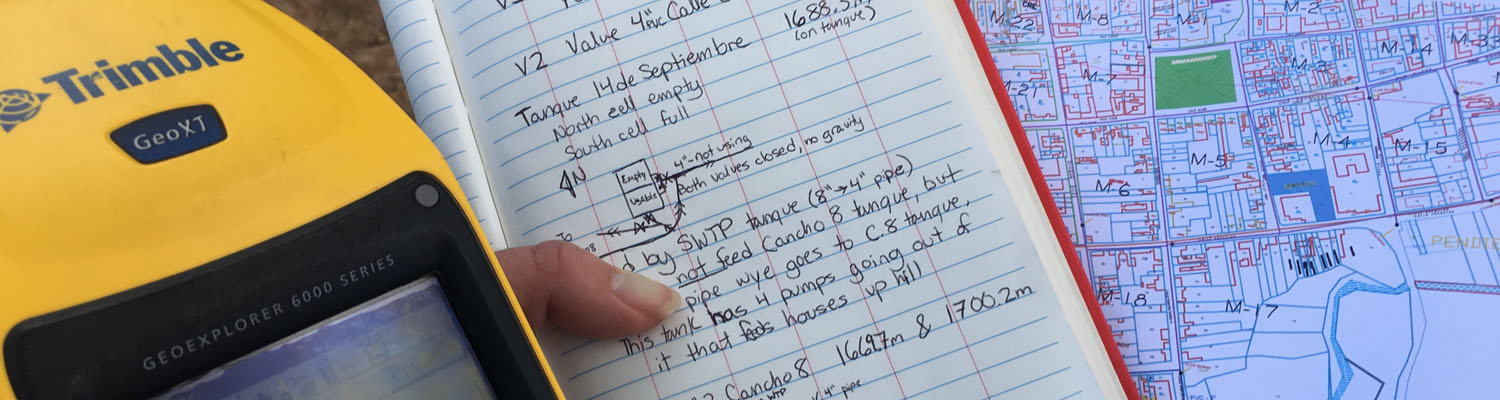 Trimble
GeoXT
GEOEXPLORER 6000 SERIES
V2 Valve 4" PVC Calle
1688.5m
(on tanque)
Tanque 14 de Septiembre
North cell empty
South cell full
N
Empty
Usable
4"-not using
Both valves closed, no gravity
To
d by SWTP tanque (8"→4" pipe)
not feed Cancho 8 tanque, but
pipe wye goes to C.8 tanque.
This tank has 4 pumps going out of
it that feeds houses up hill
Cancho 8 1669.7m & 1700.2m
4" pipe
M-22
M-8
M-1
M-2
M-21
M-7
M-3
M-14
M-33
M-6
M-5
M-4
M-15
M-18
M-17
PENDIE